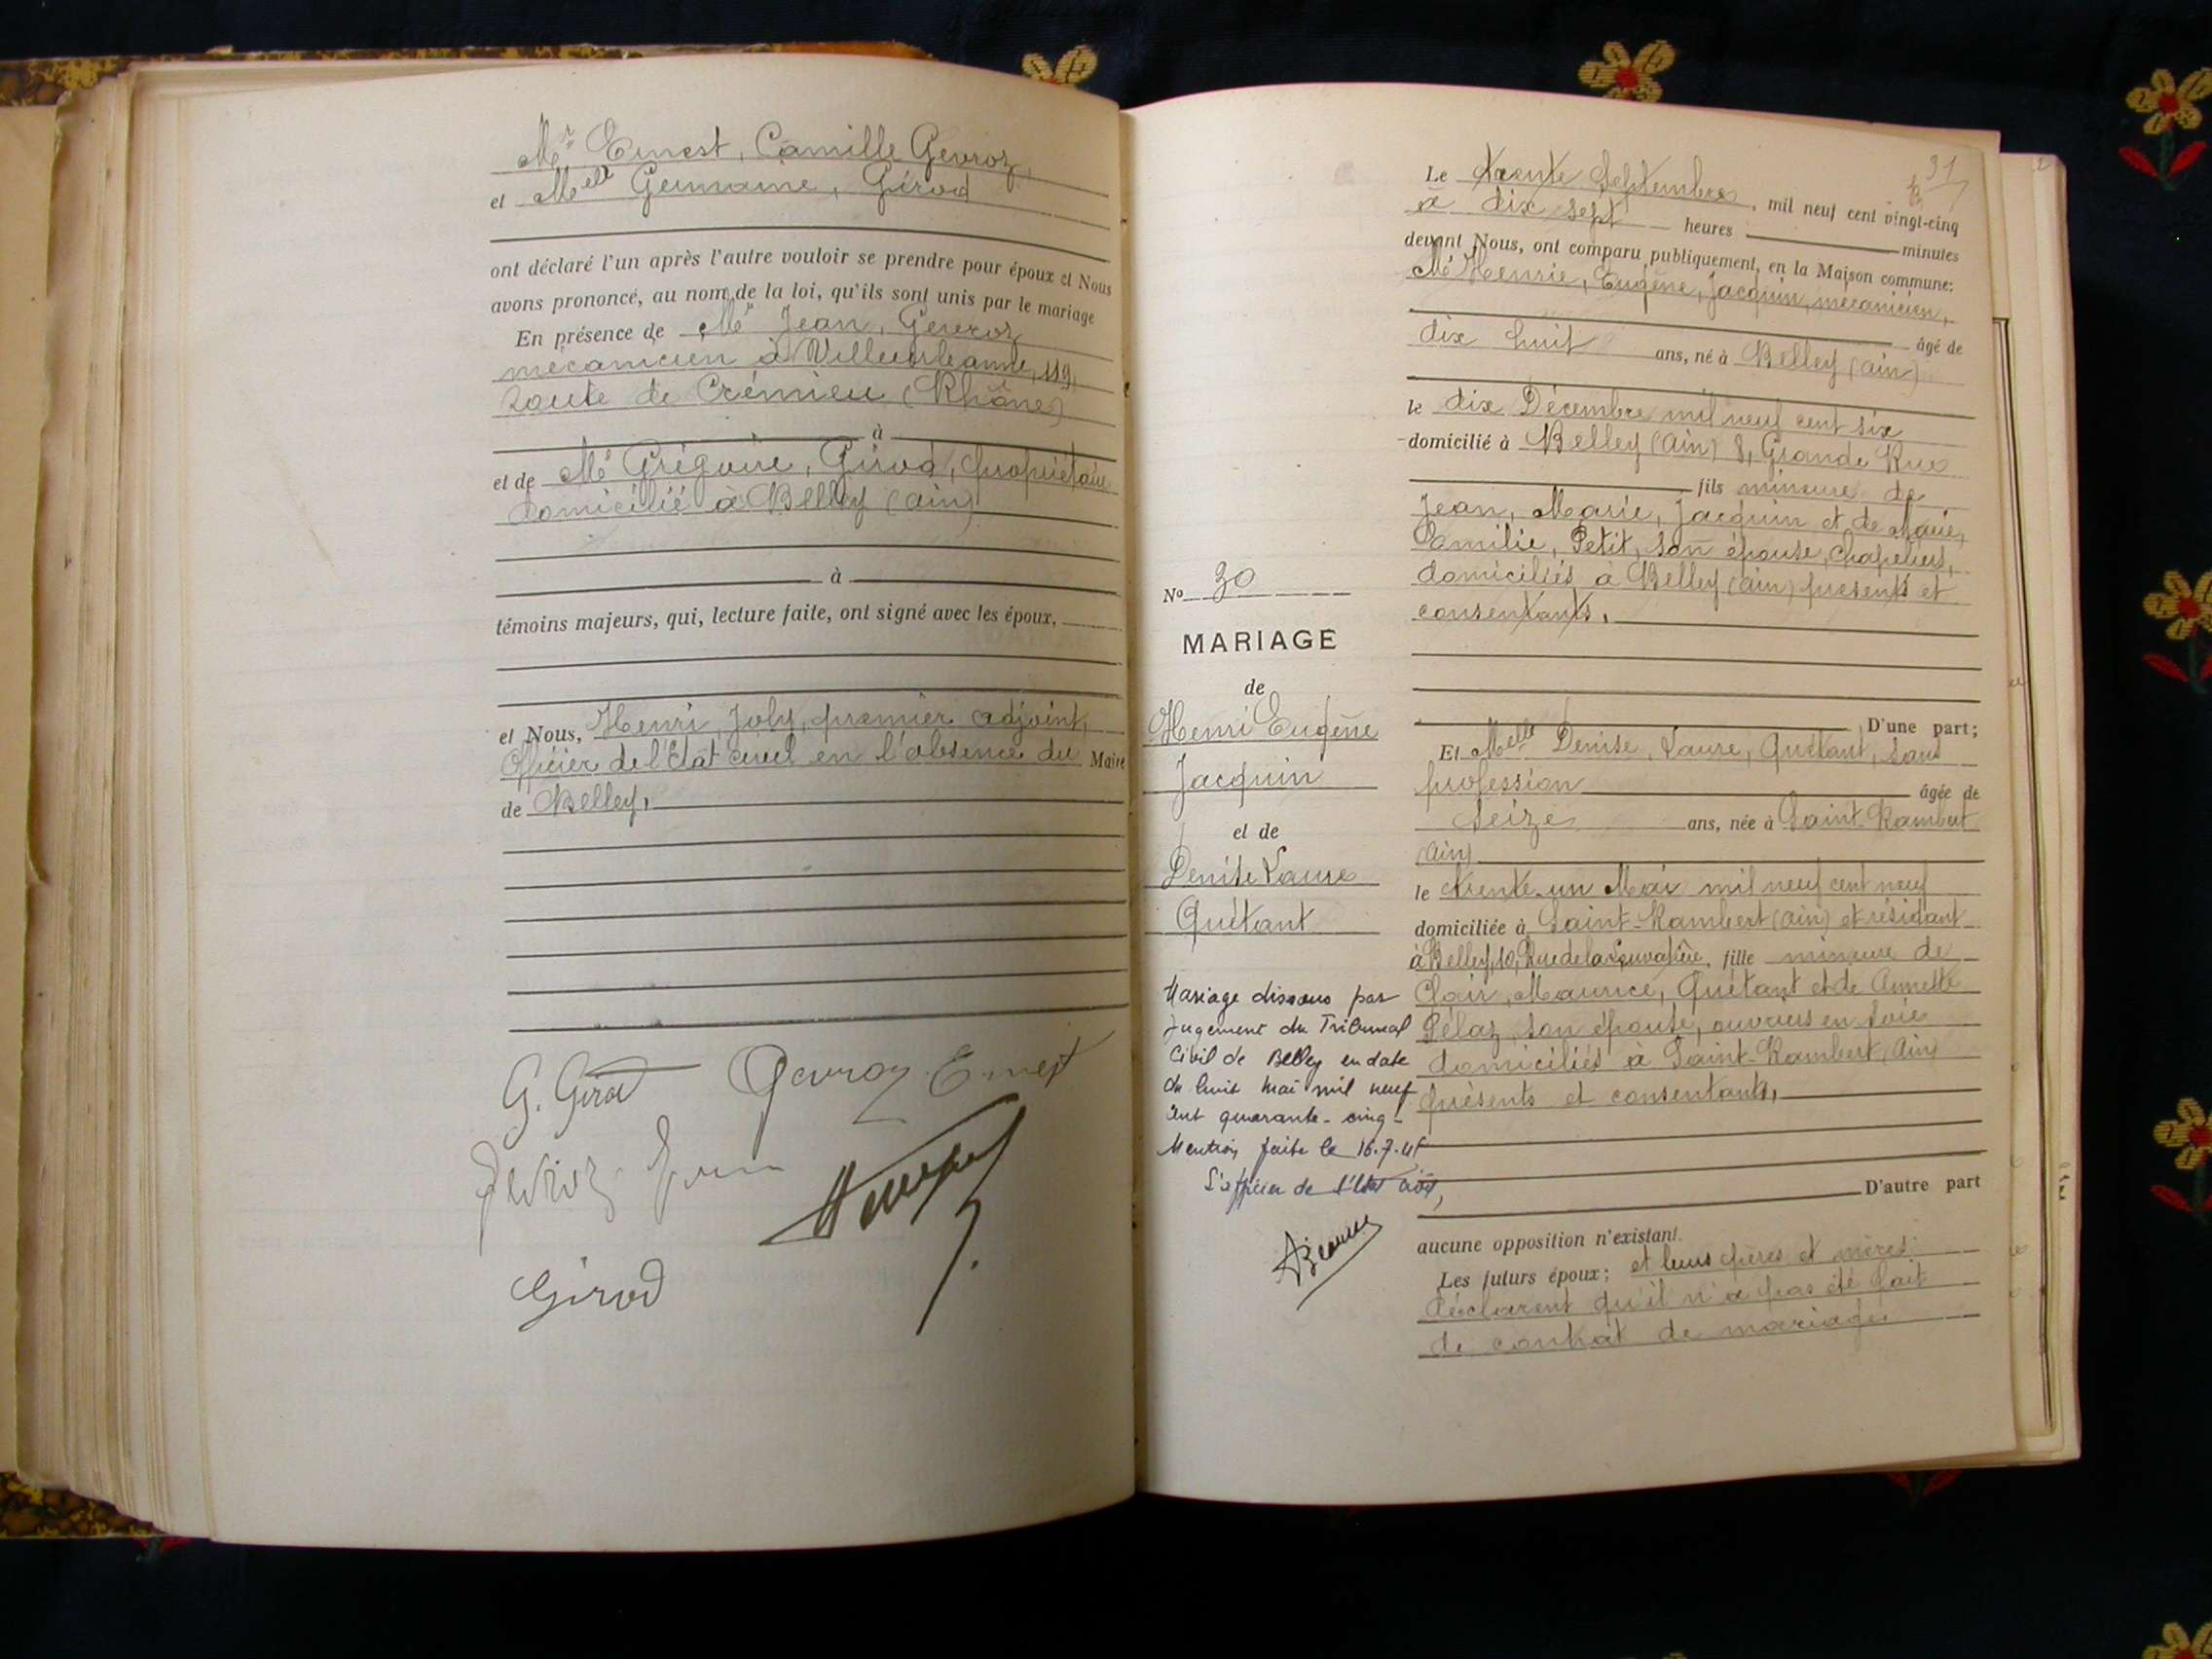 Mr Ernest, Camille Gevroz,
et Melle Germaine, Girod
ont déclaré l'un après l'autre vouloir se prendre pour époux et Nous
avons prononcé, au nom de la loi, qu'ils sont unis par le mariage
En présence de Mr Jean, Gevroz
mécanicien à Villeurbanne, 119,
route de Crémieu (Rhône)
à
et de Mr Grégoire, Girod, propriétaire
domicilié à Belley (ain)
à
témoins majeurs, qui, lecture faite, ont signé avec les époux,
et Nous, Henri, Joly, premier adjoint,
Officier de l'Etat civil en l'absence du Maire
de Belley,
G. Girod Gevroz Ernest
Gevroz
Girod
31
Le trente Septembre, mil neuf cent vingt-cinq
à dix sept heures minutes
devant Nous, ont comparu publiquement, en la Maison commune:
Mr Henrie, Eugène, Jacquin, mécanicien,
âgé de
dix huit ans, né à Belley (ain)
le dix Décembre mil neuf cent six
domicilié à Belley (ain) 8, Grande Rue
fils mineure de
Jean, Marie, Jacquin et de Marie,
Camilie, Petit, son épouse, chapeliers,
domiciliés à Belley (ain) présents et
consentants.
D'une part;
Et Melle Denise, Laure, Quétant, sans
profession âgée de
seize ans, née à Saint-Rambert
(ain)
le trente-un Mai mil neuf cent neuf
domiciliée à Saint-Rambert (ain) et résidant
à Belley, 10, Rue de la fille mineure de
Clair, Maurice, Quétant et de Annette
Pélaz, son épouse, ouvriers en soie
domiciliés à Saint-Rambert (ain)
présents et consentants,
D'autre part
aucune opposition n'existant.
Les futurs époux; et leurs pères et mères
déclarent qu'il n'a pas été fait
de contrat de mariage
No 30
MARIAGE
de
Henri Eugène
Jacquin
et de
Denise Laure
Quétant
Mariage dissous par
jugement du Tribunal
Civil de Belley en date
du huit mai mil neuf
cent quarante-cinq-
Mention faite le 16.7.45
L'officier de l'état civil,